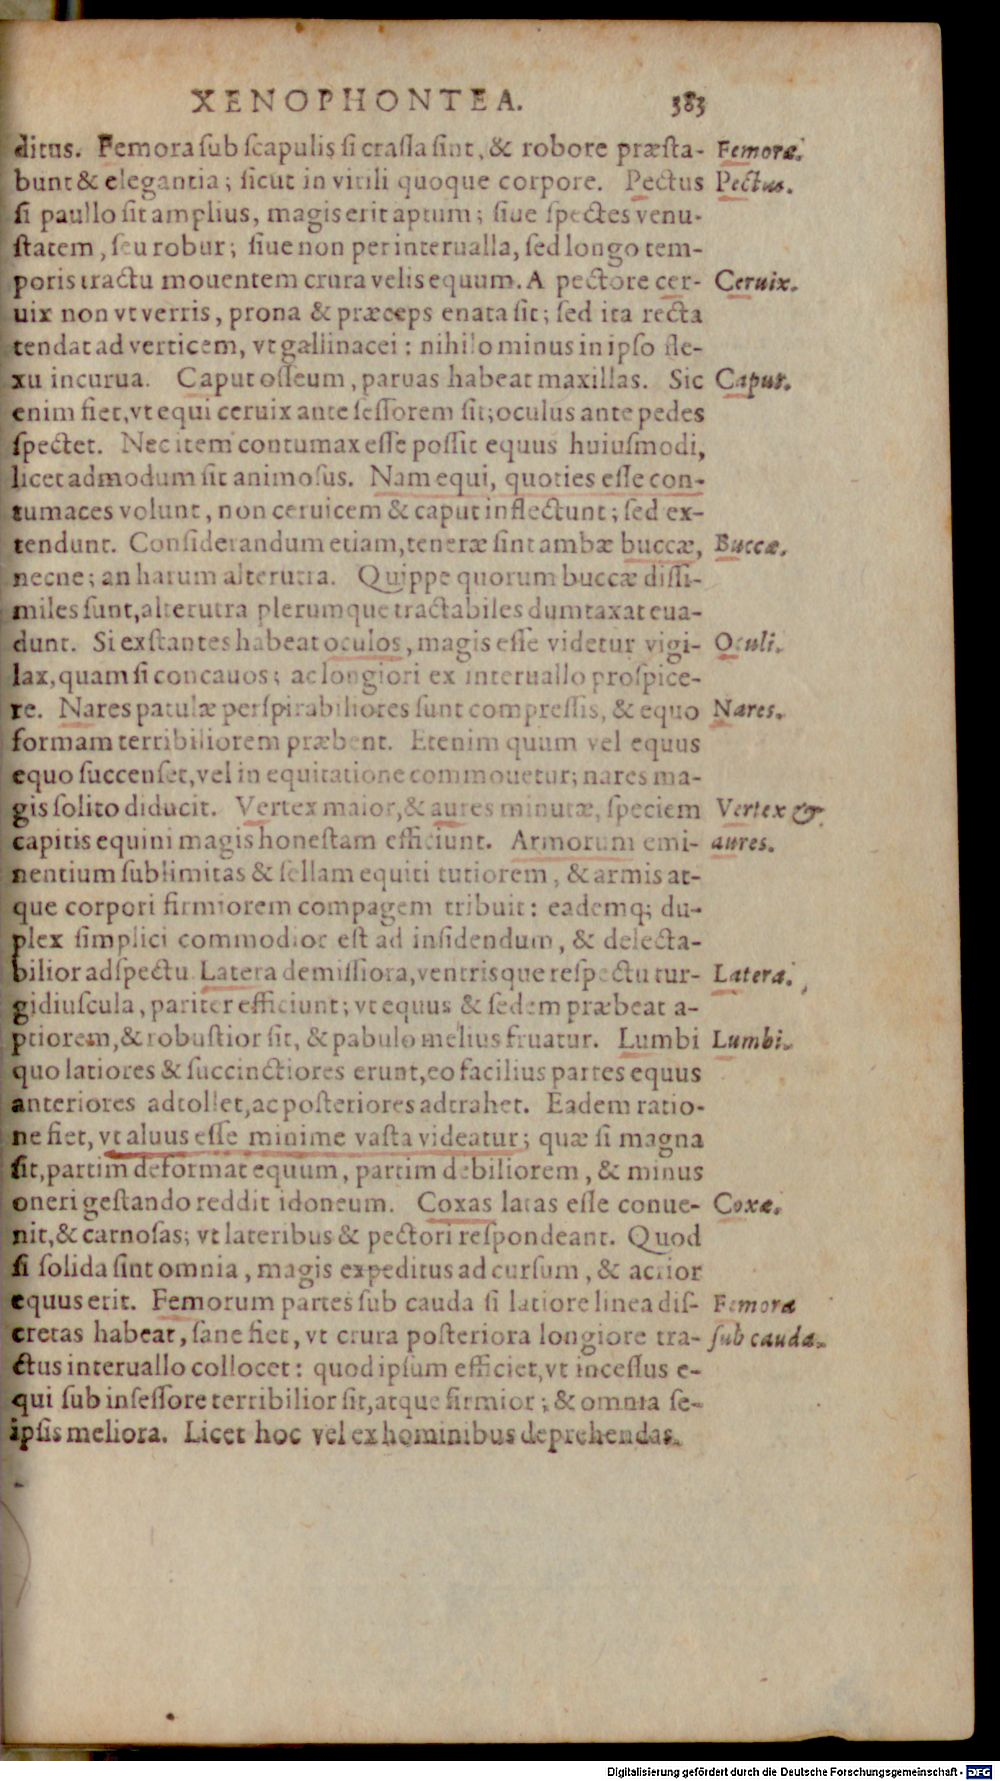 XENOPHONTEA. 383
ditus. Femora sub scapulis si crassa sint, & robore præsta- Femora.
bunt & elegantia; sicut in virili quoque corpore. Pectus Pectus.
si paullo sit amplius, magis erit aptum; siue spectes venu-
statem, seu robur; siue non per interualla, sed longo tem-
poris tractu mouentem crura velis equum. A pectore cer- Ceruix.
uix non vt verris, prona & præceps enata sit; sed ita recta
tendat ad verticem, vt gallinacei: nihilo minus in ipso fle-
xu incurua. Caput osseum, paruas habeat maxillas. Sic Caput.
enim fiet, vt equi ceruix ante sessorem sit; oculus ante pedes
spectet. Nec item contumax esse possit equus huiusmodi,
licet admodum sit animosus. Nam equi, quoties esse con-
tumaces volunt, non ceruicem & caput inflectunt; sed ex-
tendunt. Considerandum etiam, teneræ sint ambæ buccæ, Buccæ.
necne; an harum alterutra. Quippe quorum buccæ dissi-
miles sunt, alterutra plerumque tractabiles dumtaxat eua-
dunt. Si exstantes habeat oculos, magis esse videtur vigi- Oculi.
lax, quam si concauos; ac longiori ex interuallo prospice-
re. Nares patulæ perspirabiliores sunt compressis, & equo Nares.
formam terribiliorem præbent. Etenim quum vel equus
equo succenset, vel in equitatione commouetur; nares ma-
gis solito diducit. Vertex maior, & aures minutæ, speciem Vertex &
capitis equini magis honestam efficiunt. Armorum emi- aures.
nentium sublimitas & sellam equiti tutiorem, & armis at-
que corpori firmiorem compagem tribuit: eademq; du-
plex simplici commodior est ad insidendum, & delecta-
bilior adspectu. Latera demissiora, ventrisque respectu tur- Latera.
gidiuscula, pariter efficiunt; vt equus & sedem præbeat a-
ptiorem, & robustior sit, & pabulo melius fruatur. Lumbi Lumbi.
quo latiores & succinctiores erunt, eo facilius partes equus
anteriores adtollet, ac posteriores adtrahet. Eadem ratio-
ne fiet, vt aluus esse minime vasta videatur; quæ si magna
sit, partim deformat equum, partim debiliorem, & minus
oneri gestando reddit idoneum. Coxas latas esse conue- Coxæ.
nit, & carnosas; vt lateribus & pectori respondeant. Quod
si solida sint omnia, magis expeditus ad cursum, & acrior
equus erit. Femorum partes sub cauda si latiore linea dis- Femora
cretas habeat, sane fiet, vt crura posteriora longiore tra- sub cauda.
ctus interuallo collocet: quod ipsum efficiet, vt incessus e-
qui sub insessore terribilior sit, atque firmior; & omnia se-
ipsis meliora. Licet hoc vel ex hominibus deprehendas.
Digitalisierung gefördert durch die Deutsche Forschungsgemeinschaft - DFG